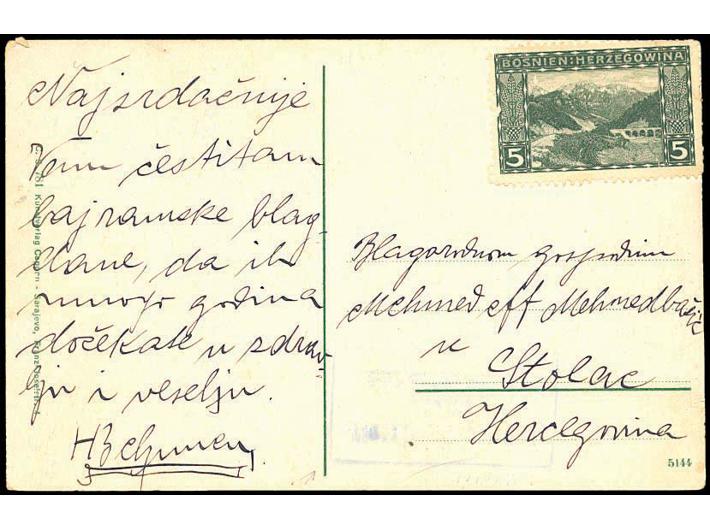 Najsrdačnije
Vam čestitam
bajramske blag-
dane, da ih
mnogo godina
dočekate u zdrav-
lju i veselju.
BOSNIEN:HERZEGOWINA
5 5
Blagorodnom gospodinu
Mehmed eff Mehmedbašić
u
Stolac
Hercegovina
5144